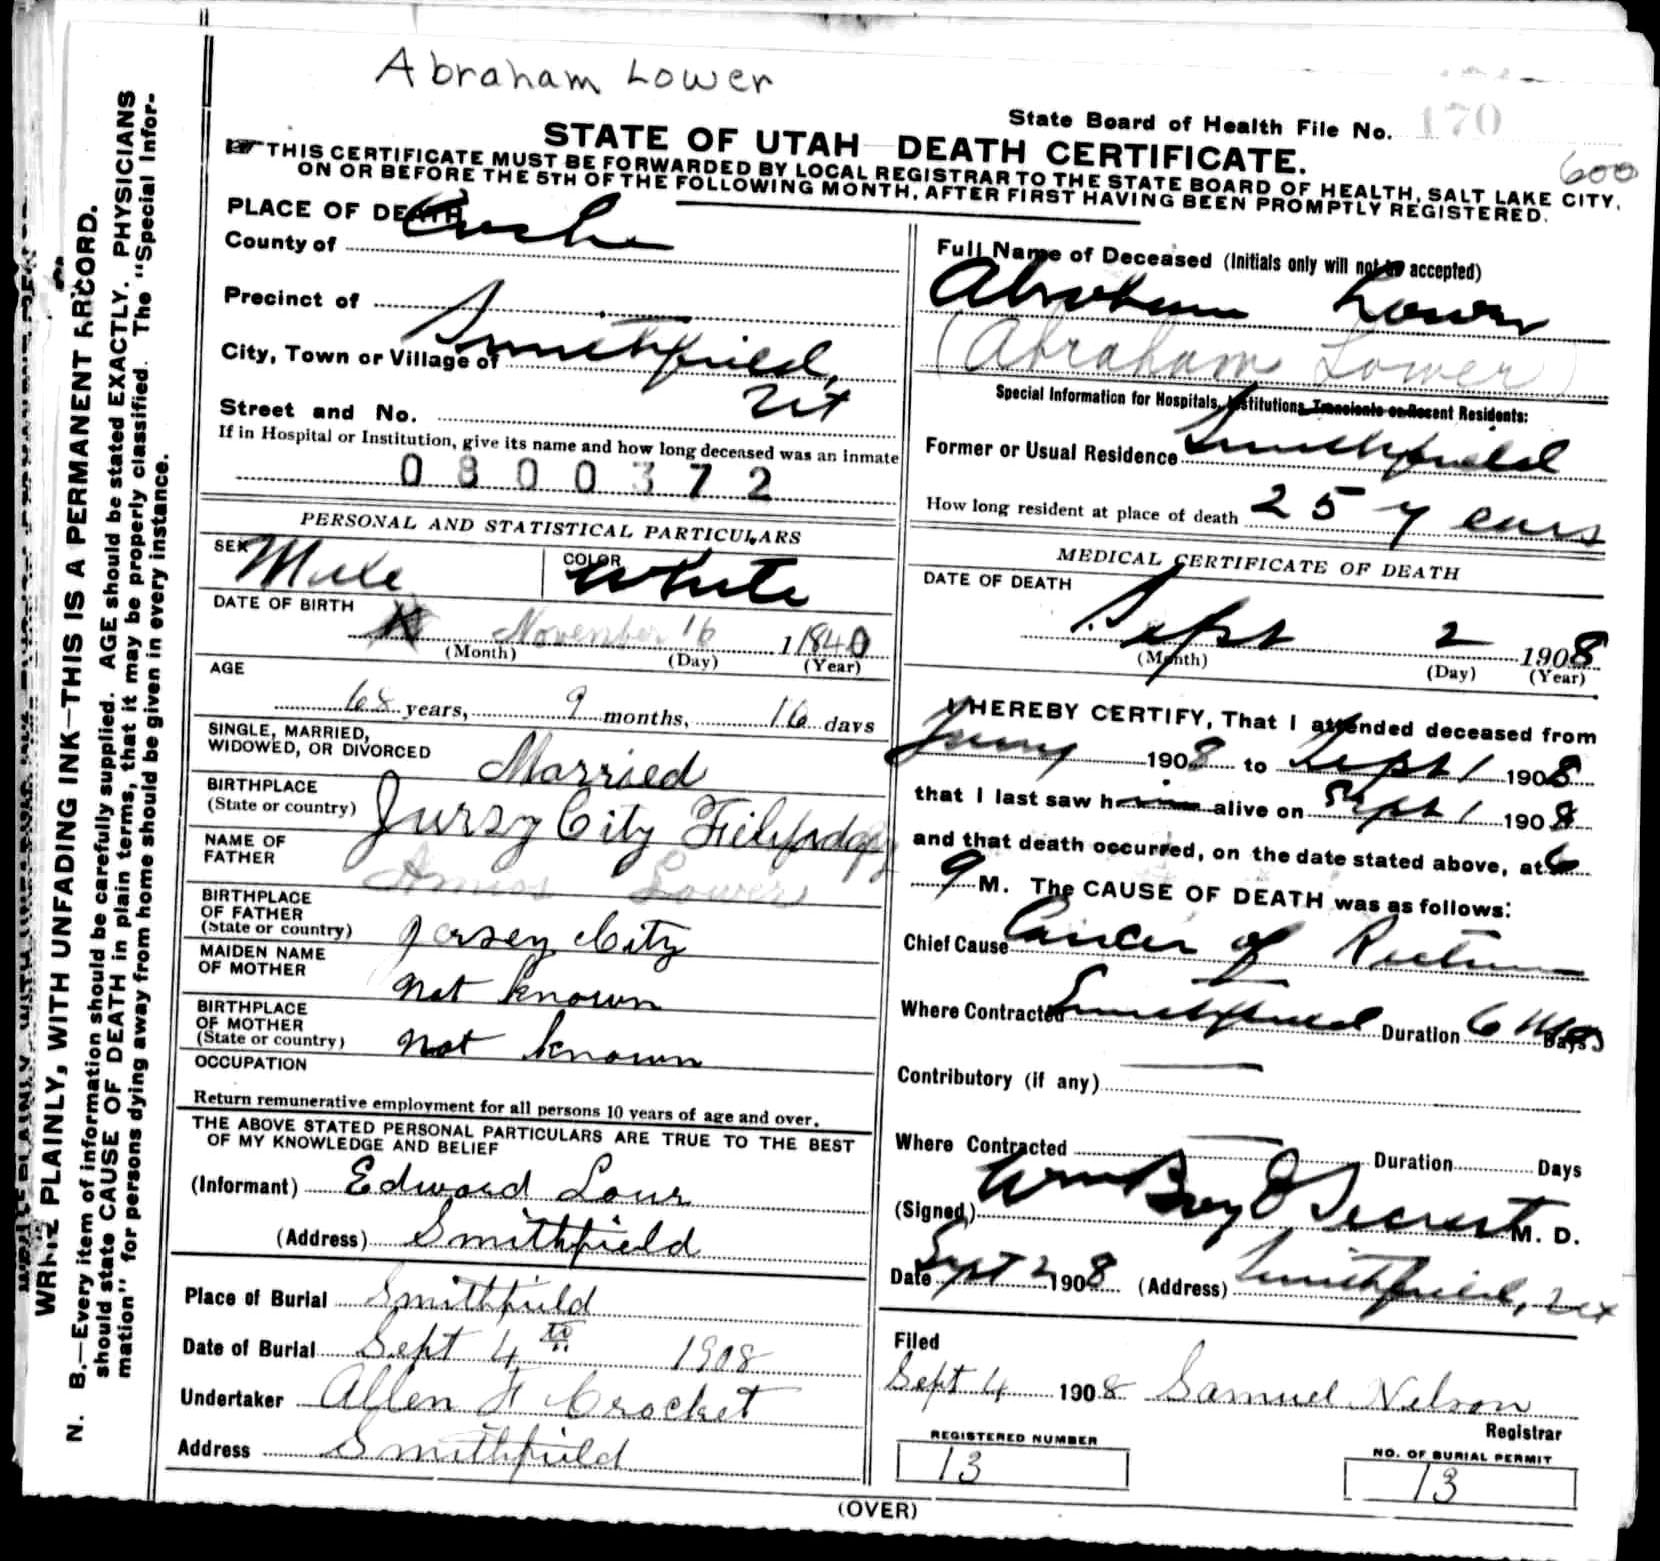 Abraham Lower
State Board of Health File No. 170
STATE OF UTAH DEATH CERTIFICATE.
600
THIS CERTIFICATE MUST BE FORWARDED BY LOCAL REGISTRAR TO THE STATE BOARD OF HEALTH, SALT LAKE CITY,
ON OR BEFORE THE 5TH OF THE FOLLOWING MONTH, AFTER FIRST HAVING BEEN PROMPTLY REGISTERED.
PLACE OF DEATH
County of Cache
Precinct of
City, Town or Village of Smithfield,
Ut
Street and No.
If in Hospital or Institution, give its name and how long deceased was an inmate
0 8 0 0 3 7 2
PERSONAL AND STATISTICAL PARTICULARS
SEX Male COLOR White
DATE OF BIRTH
November 16 1840
(Month) (Day) (Year)
AGE
68 years, 9 months, 16 days
SINGLE, MARRIED,
WIDOWED, OR DIVORCED Married
BIRTHPLACE
(State or country) Jursy City
NAME OF
FATHER Amos Lower
BIRTHPLACE
OF FATHER
(State or country) Jersey City
MAIDEN NAME
OF MOTHER not known
BIRTHPLACE
OF MOTHER
(State or country) not known
OCCUPATION
Return remunerative employment for all persons 10 years of age and over.
THE ABOVE STATED PERSONAL PARTICULARS ARE TRUE TO THE BEST
OF MY KNOWLEDGE AND BELIEF
(Informant) Edward Lour
(Address) Smithfield
Place of Burial Smithfield
Date of Burial Sept 4th 1908
Undertaker Allen F Crocket
Address Smithfield
Full Name of Deceased (Initials only will not be accepted)
Abraham Lower
(Abraham Lower)
Special Information for Hospitals, Institutions, Transients or Recent Residents:
Former or Usual Residence Smithfield
How long resident at place of death 25 years
MEDICAL CERTIFICATE OF DEATH
DATE OF DEATH
Sept 2 1908
(Month) (Day) (Year)
I HEREBY CERTIFY, That I attended deceased from
1908 to Sept 1 1908
that I last saw him alive on Sept 1 1908
and that death occurred, on the date stated above, at 6
M. The CAUSE OF DEATH was as follows:
Chief Cause Cancer of Rectum
Where Contracted Smithfield Duration 6 Days
Contributory (if any)
Where Contracted Duration Days
(Signed) M. D.
Date Sept 2 1908 (Address) Smithfield, Ut
Filed
Sept 4 1908 Samuel Nelson
Registrar
REGISTERED NUMBER
13
NO. OF BURIAL PERMIT
13
(OVER)
WRITE PLAINLY, WITH UNFADING INK—THIS IS A PERMANENT RECORD.
N. B.—Every item of information should be carefully supplied. AGE should be stated EXACTLY. PHYSICIANS
should state CAUSE OF DEATH in plain terms, that it may be properly classified. The "Special Infor-
mation" for persons dying away from home should be given in every instance.